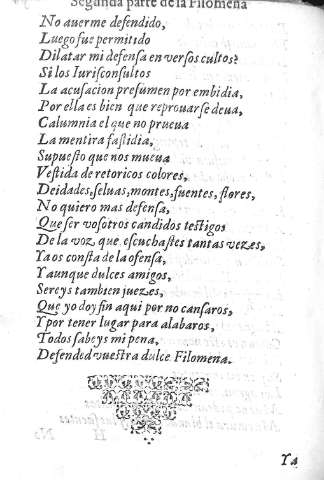 Segunda parte de la Filomena
No auerme defendido,
Luego fue permitido
Dilatar mi defensa en versos cultos?
Si los Iurisconsultos
La acusacion presumen por embidia,
Por ella es bien que reprouarse deua,
Calumnia el que no prueua
La mentira fastidia,
Supuesto que nos mueua
Vestida de retoricos colores,
Deidades, seluas, montes, fuentes, flores,
No quiero mas defensa,
Que ser vosotros candidos testigos
De la voz que escuchastes tantas vezes,
Ya os consta de la ofensa,
Y aunque dulces amigos,
Sereys tambien juezes,
Que yo doy fin aqui por no cansaros,
Y por tener lugar para alabaros,
Todos sabeys mi pena,
Defended vuestra dulce Filomena.
Ya